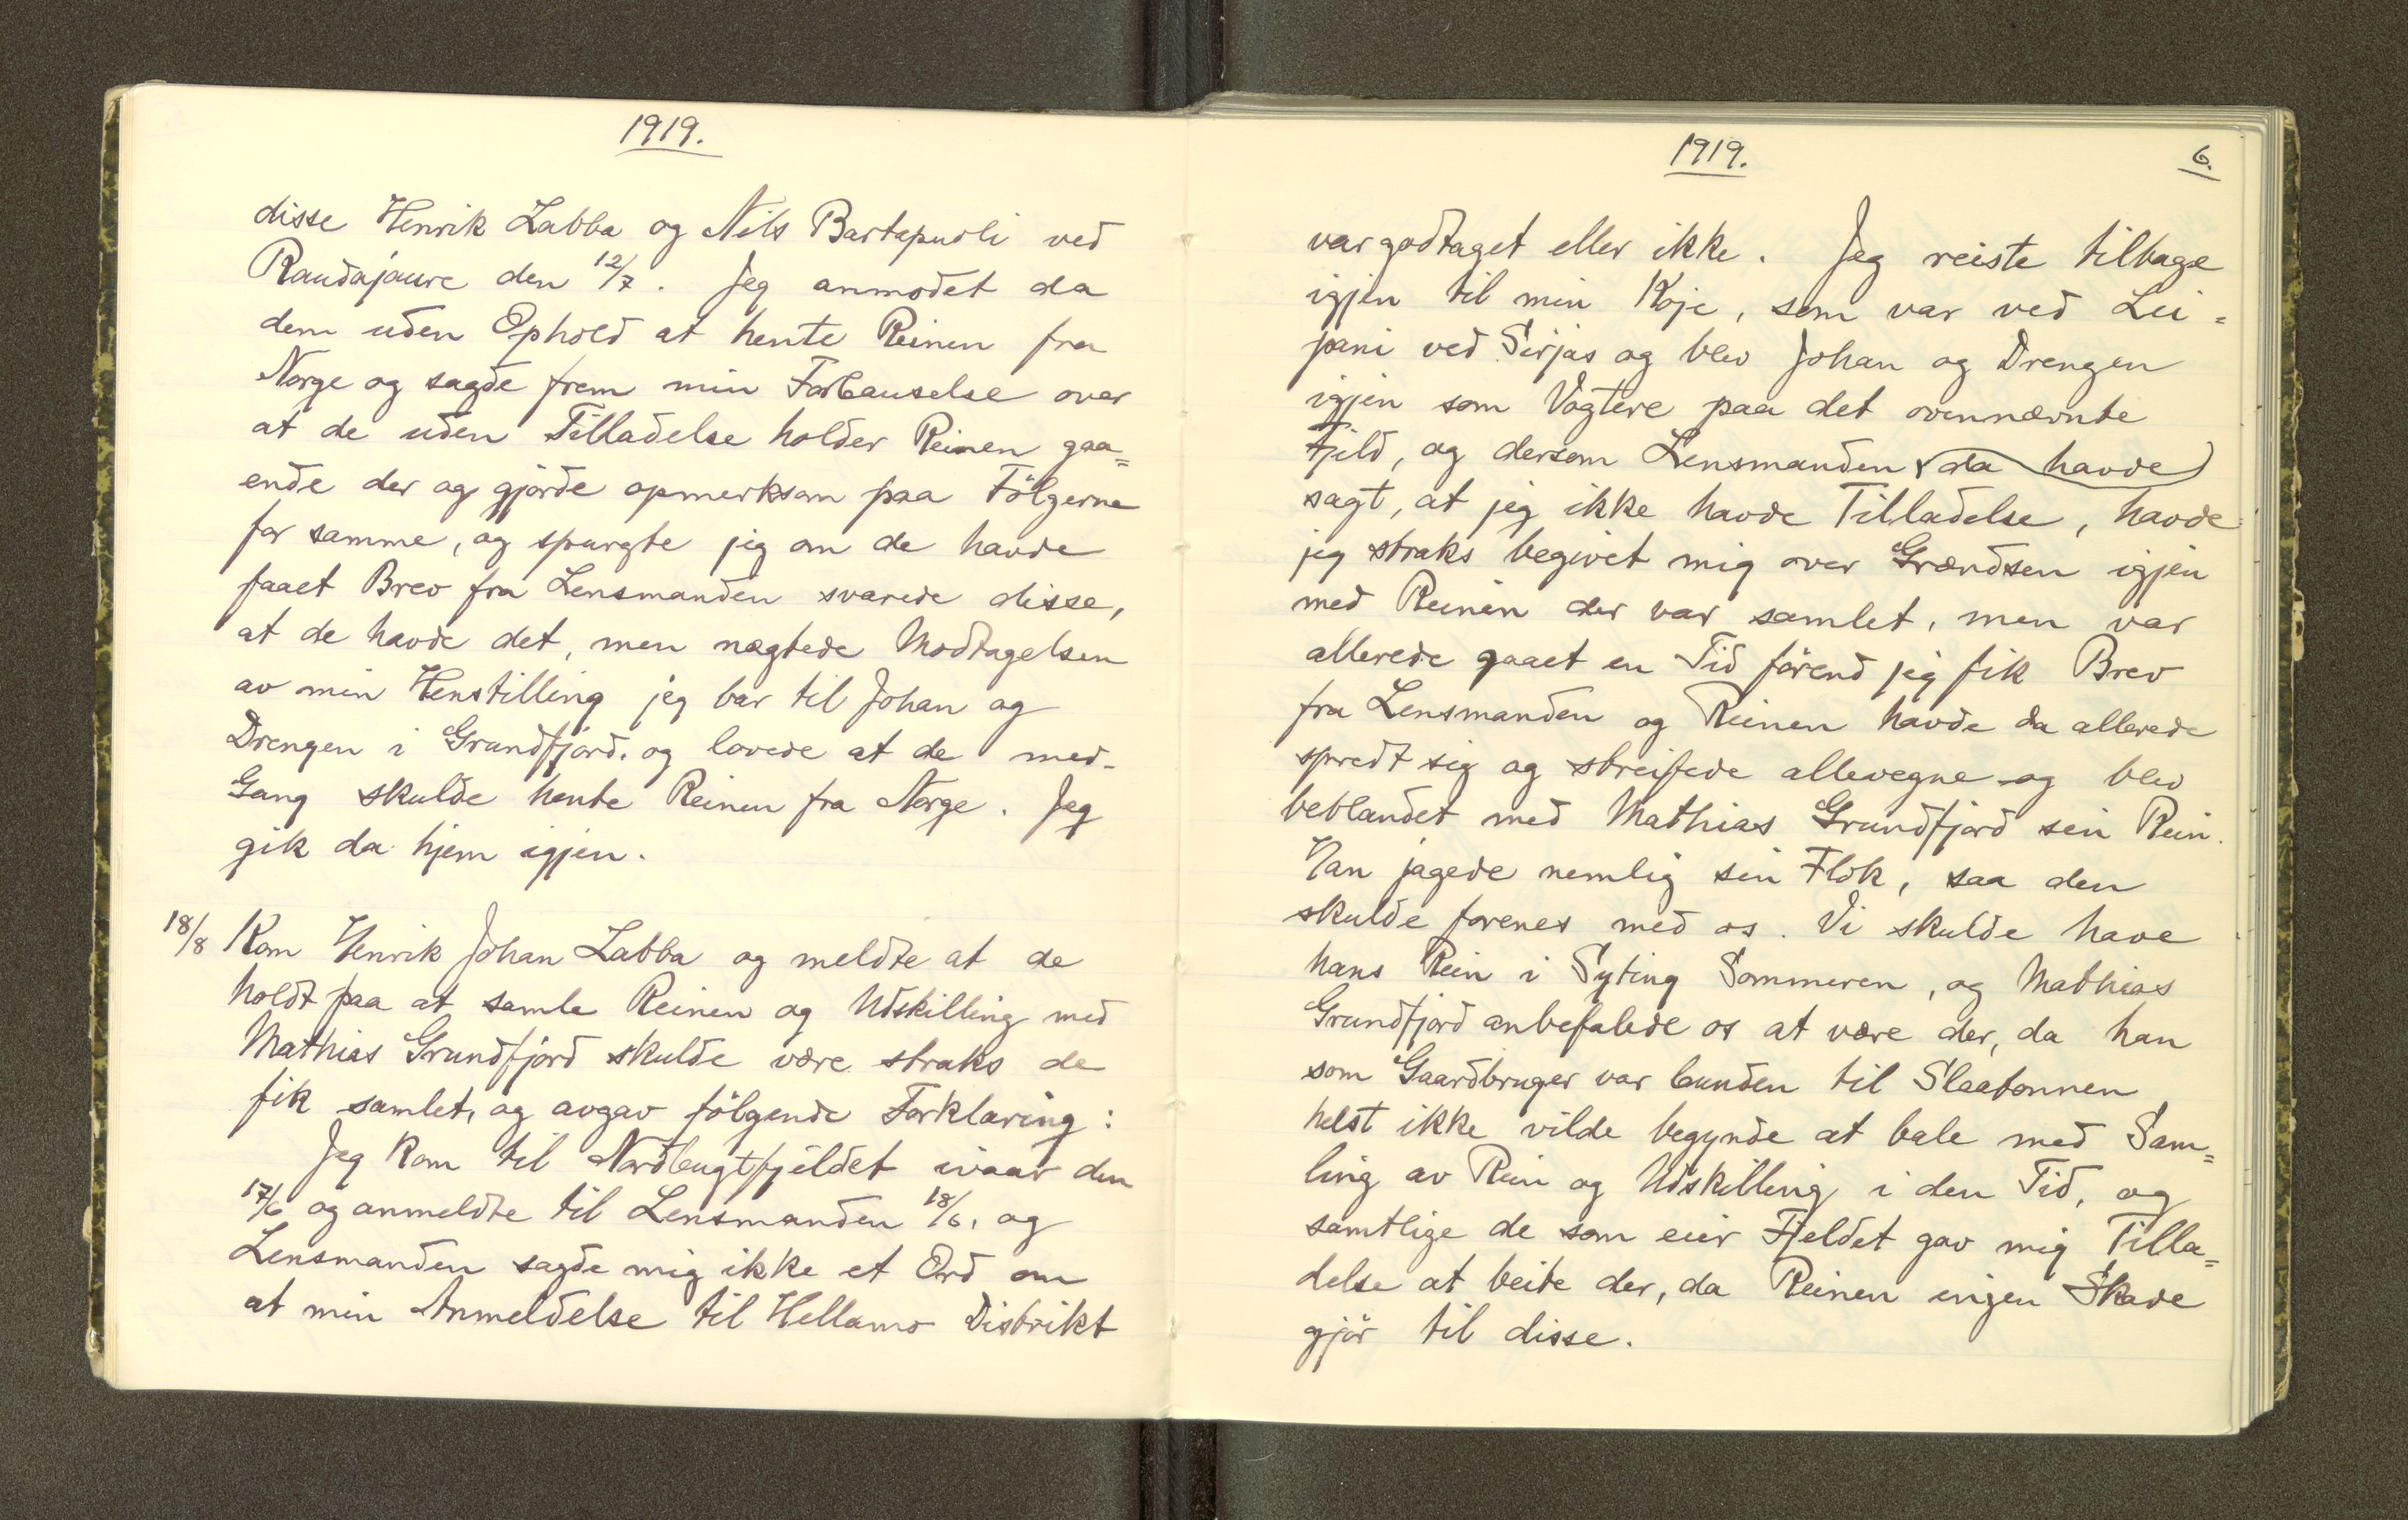 1919.
disse Henrik Labba og Nils Bartapuoli ved
Raudajaure den 12/7. Jeg anmodet da
dem uden Ophold at hente Reinen fra
Norge og sagde frem min Forbauselse over
at de uden Tilladelse holder Reinen gaa=
ende der og gjorde opmerksom paa Fölgerne
for samme, og spurgte jeg om de havde
faaet Brev fra Lensmanden svarede disse,
at de havde det, men nægtede Modtagelsen
av min Henstilling jeg bar til Johan og
Drengen i Grundfjord. og lovede at de med-
Gang skulde hente Reinen fra Norge. Jeg
gik da hjem igjen.
18/8 Kom Henrik Johan Labba og meldte at de
holdt paa at samle Reinen og Udskilling med
Mathias Grundfjord skulde være straks de
fik samlet, og avgav fölgende Forklaring:
Jeg kom til Nordbugtfjeldet ivaar den
17/6 og anmeldte til Lensmanden 18/6, og
Lensmanden sagde mig ikke et Ord om
at min Anmeldelse til Hellamo Distrikt
1919.
6.
var godtaget eller ikke. Jeg reiste tilbage
igjen til min Koje, som var ved Lei=
pani ved Sirjas og blev Johan og Drengen
igjen som Vogtere paa det ovennævnte
Fjeld, og dersom Lensmanden da havde
sagt, at jeg ikke havde Tilladelse, havde
jeg straks begivet mig over Grændsen igjen
med Reinen der var samlet, men var
allerede gaaet en Tid förend jeg fik Brev
fra Lensmanden og Reinen havde da allerede
spredt sig og streifede allevegne og blev
beblandet med Mathias Grundfjord sin Rein.
Han jagede nemlig sin Flok, saa den
skulde forenes med os. Vi skulde have
hans Rein i Syting Sommeren, og Mathias
Grundfjord anbefalede os at være der, da han
som Gaardbruger var bunden til Slaatonnen
helst ikke vilde begynde at bale med Sam=
ling av Rein og Udskilling i den Tid, og
samtlige de som eier Fjeldet gav mig Tilla=
delse at beite der, da Reinen ingen Skade
gjör til disse.